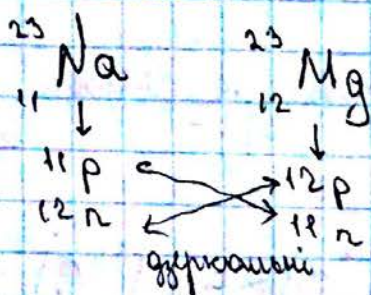 ²³₁₁Na ²³₁₂Mg
11 p 12 p
12 n 11 n
дзеркальні